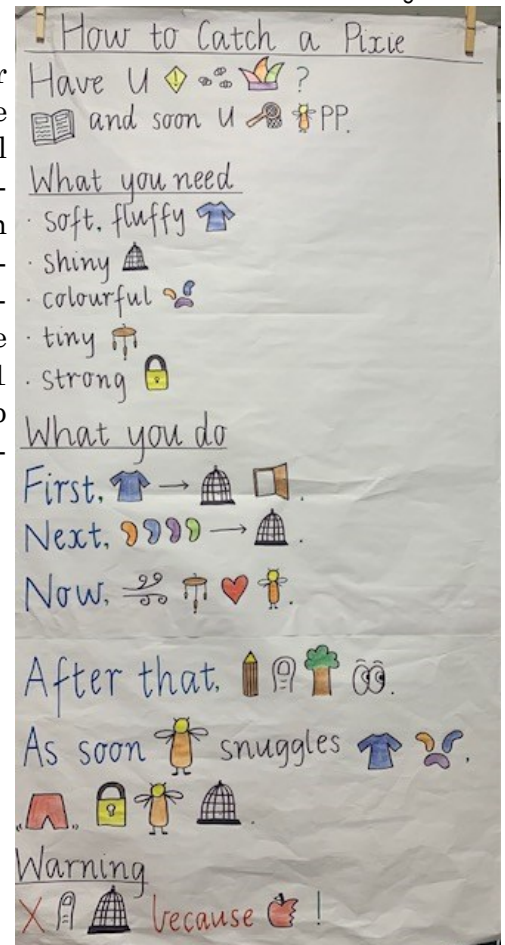 How to Catch a Pixie
Have U ?
and soon U PP.
What you need
· soft, fluffy
· shiny
· colourful
· tiny
· strong
What you do
First, → .
Next, → .
Now, .
After that, .
As soon snuggles ,
„ „ .
Warning
X because !